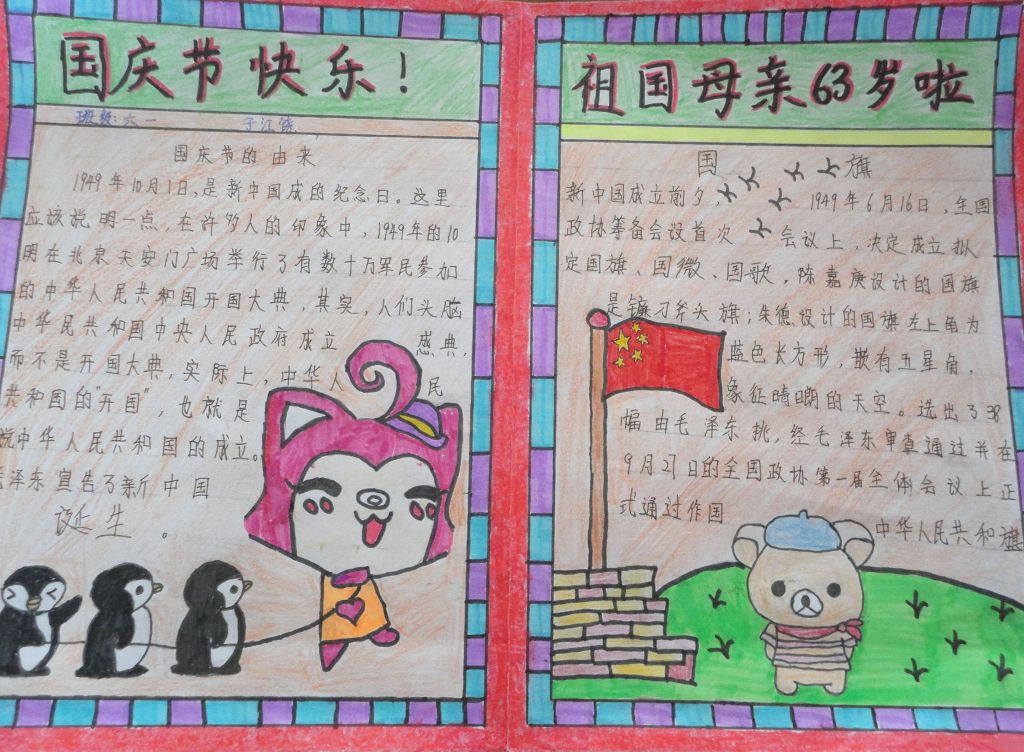 国庆节快乐!
班级:六一 于江饶
国庆节的由来
1949年10月1日,是新中国成的纪念日。这里
应该说明一点,在许多人的印象中,1949年的10
明在北京天安门广场举行了有数十万军民参加
的中华人民共和国开国大典,其实,人们头脑
中华民共和国中央人民政府成立 盛典,
而不是开国大典,实际上,中华人 民
共和国的"开国",也就是
说中华人民共和国的成立。
毛泽东宣告了新中国
诞生。
祖国母亲63岁啦
国 旗
新中国成立前夕, 1949年6月16日,全国
政协筹备会议首次 会议上,决定成立拟
定国旗、国徽、国歌,陈嘉庚设计的国旗
是镰刀斧头旗;朱德设计的国旗左上角为
蓝色长方形,嵌有五星角,
象征晴朗的天空。选出了38
幅由毛泽东挑,经毛泽东审查通过并在
9月27日的全国政协第一届全体会议上正
式通过作国
中华人民共和旗